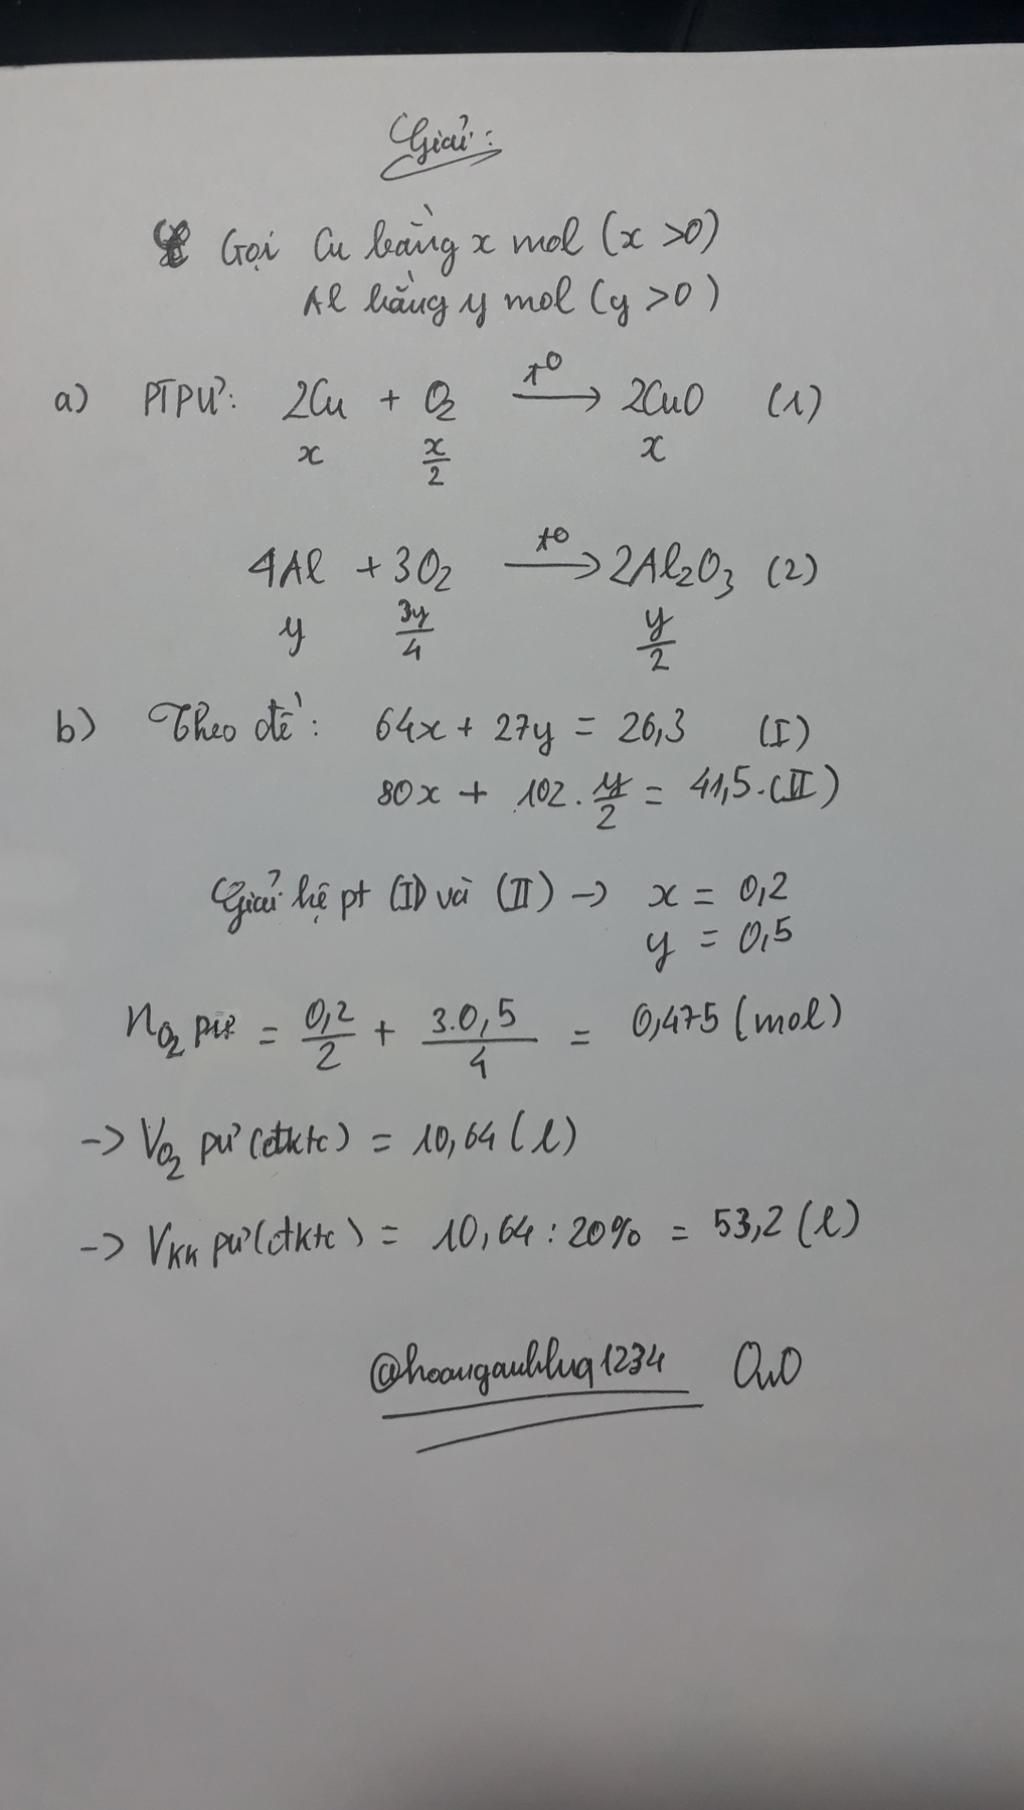 Giải:
Gọi Cu bằng x mol (x >0)
Al bằng y mol (y >0)
a) PTPƯ: 2Cu + O₂ —t⁰→ 2CuO (1)
x x/2 x
4Al + 3O₂ —t⁰→ 2Al₂O₃ (2)
y 3y/4 y/2
b) Theo đề: 64x + 27y = 26,3 (I)
80x + 102 . y/2 = 41,5 . (II)
Giải hệ pt (I) và (II) -> x = 0,2
y = 0,5
nO₂ pư = 0,2/2 + 3.0,5/4 = 0,475 (mol)
-> VO₂ pư (đktc) = 10,64 (l)
-> Vkk pư (đktc) = 10,64 : 20% = 53,2 (l)
@hoanganhluq1234 OuO